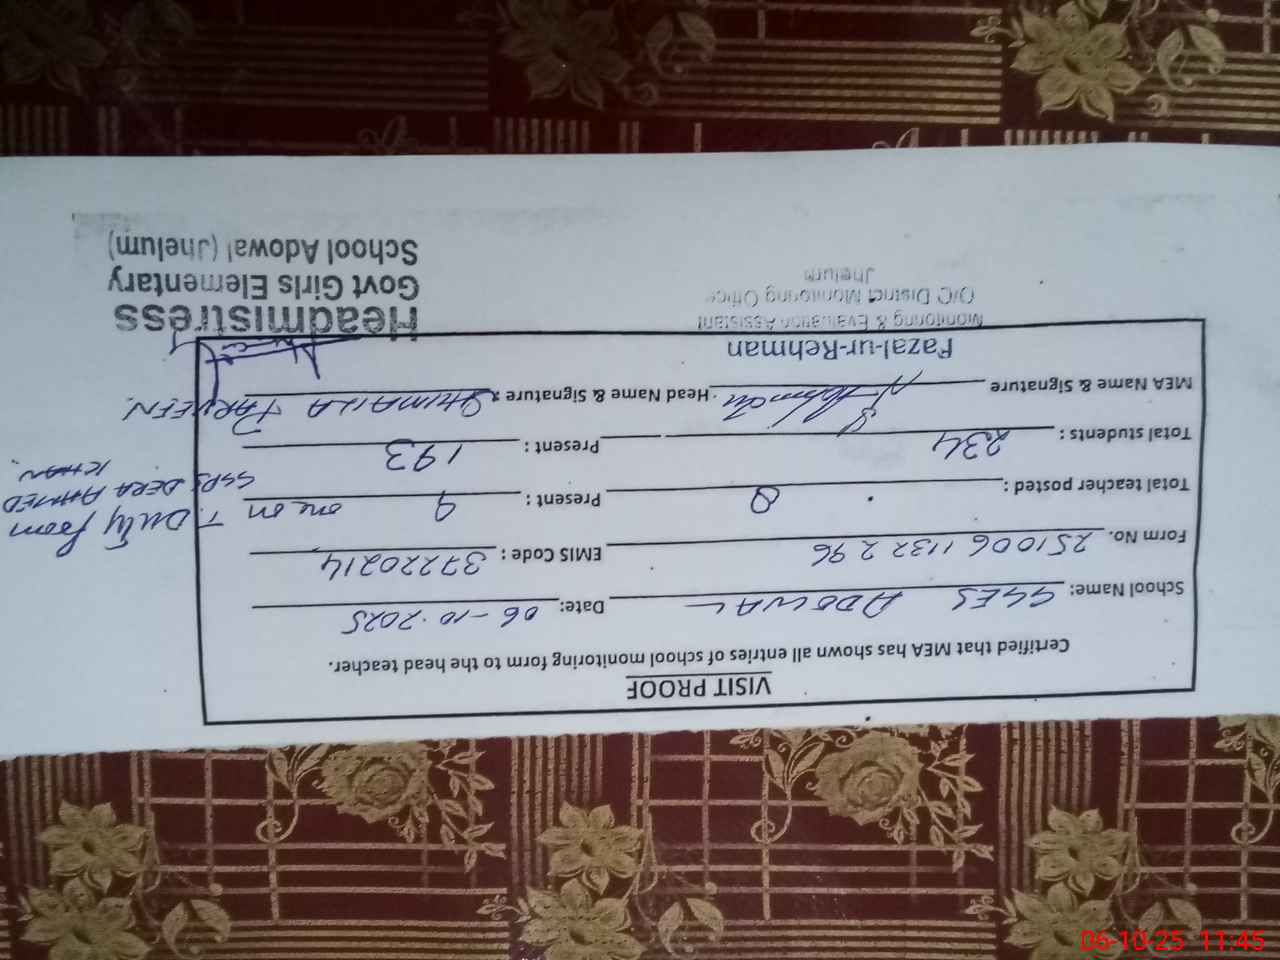 VISIT PROOF
Certified that MEA has shown all entries of school monitoring form to the head teacher.
School Name: GGES ADOWAL Date: 06-10-2025
Form No. 251006 1132 296 EMIS Code : 37220214
Total teacher posted : 8 Present : 9 one on T. Duty from
GGPS DERA AHMED KHAN.
Total students : 234 Present : 193
MEA Name & Signature Head Name & Signature : SHUMAILA PARVEEN.
Fazal-ur-Rehman
Monitoring & Evaluation Assistant
O/C District Monitoring Office
Jhelum
Headmistress
Govt Girls Elementary
School Adowal (Jhelum)
06-10-25 11:45